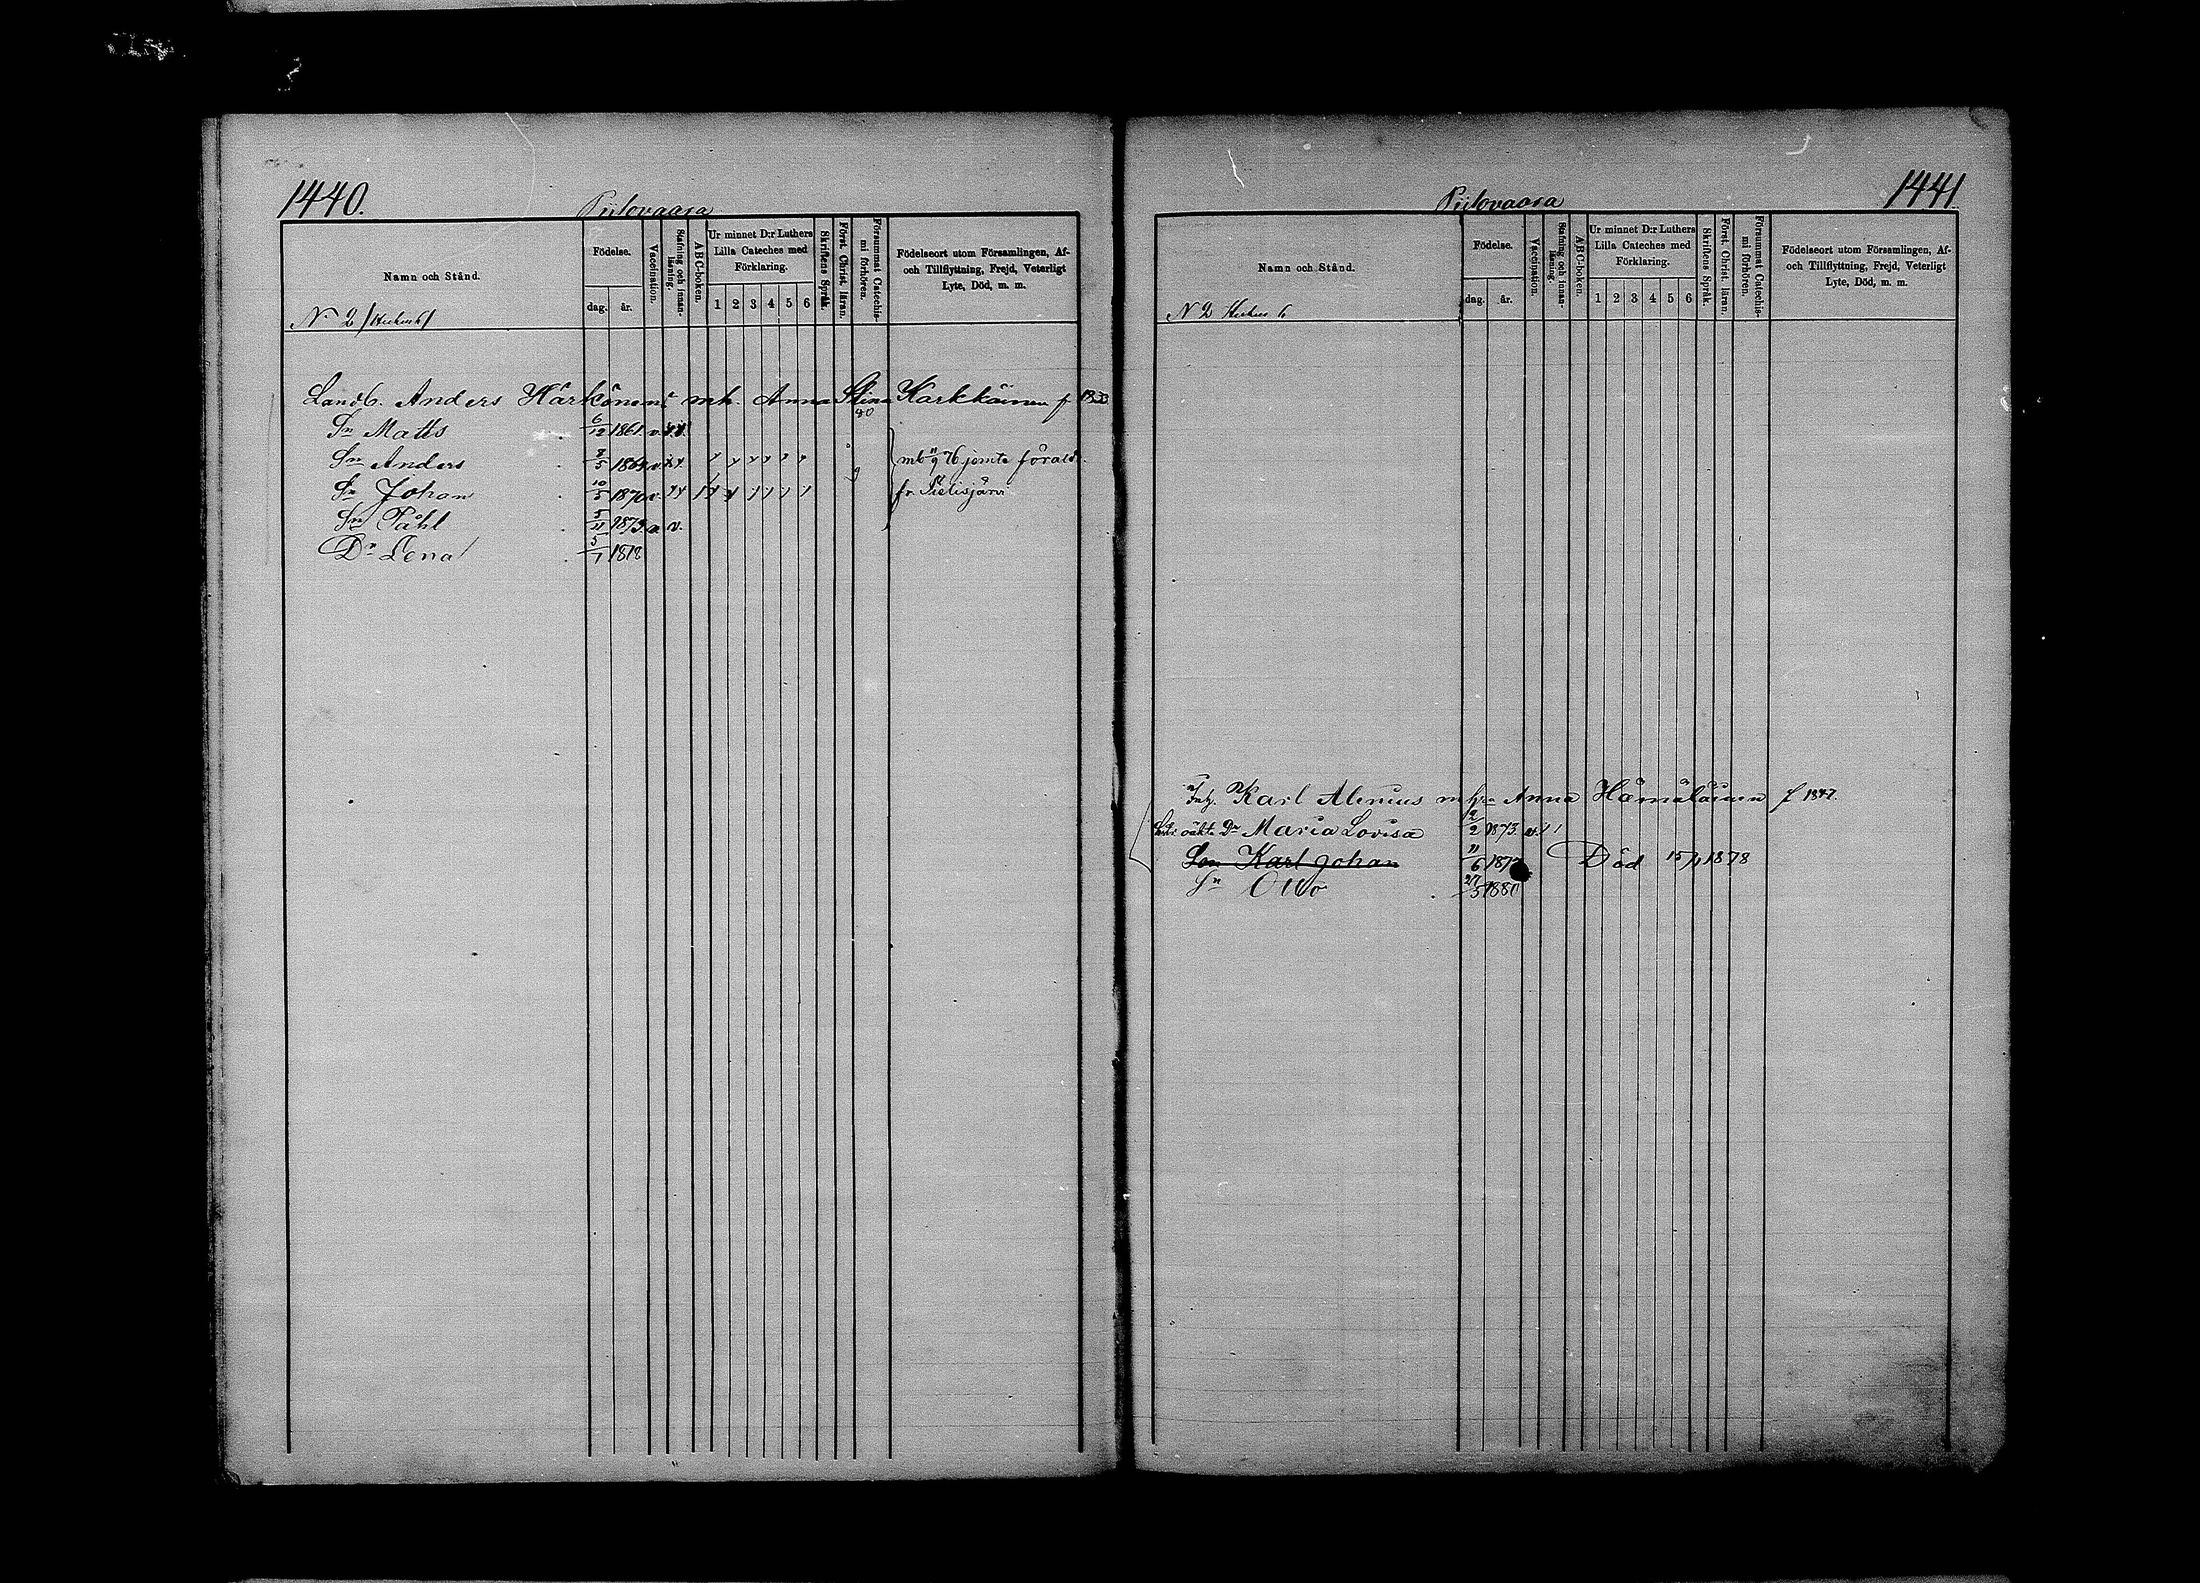 1440.
Piilovaara
Namn och Stånd.
Födelse.
dag.
år.
Vaccination.
Stafning och innanläsning.
ABC-boken.
Ur minnet D:r Luthers
Lilla Cateches med
Förklaring.
1 2 3 4 5 6
Skriftens Språk.
Först. Christ. läran.
Försummat Catechismi förhören.
Födelseort utom Församlingen, Af-
och Tillflyttning, Frejd, Veterligt
Lyte, Död, m. m.
N 2
Landb. Anders Härkönens mh. Anna Stina Karkkäinen f 1833
80
Sn Matts 6/12 1861 v.
Sn Anders 8/5 1864 v. mb 11/9 76 jemte föräld.
Sn Johan 10/5 1870 v. fr Pielisjärvi
Sn Påhl 5/11 1873 v.
Dr Lena 5/1 1878
1441
Piilovaara
Namn och Stånd.
Födelse.
dag.
år.
Vaccination.
Stafning och innanläsning.
ABC-boken.
Ur minnet D:r Luthers
Lilla Cateches med
Förklaring.
1 2 3 4 5 6
Skriftens Språk.
Först. Christ. läran.
Försummat Catechismi förhören.
Födelseort utom Församlingen, Af-
och Tillflyttning, Frejd, Veterligt
Lyte, Död, m. m.
N 2
Inh. Karl Alenius Anna Hämäläinen f 1847.
oäkta Dr Maria Lovisa 2/2 1873 v.
Son Karl Johan 11/6 Död 15/4 1878
Sn Otto 27/5 1880